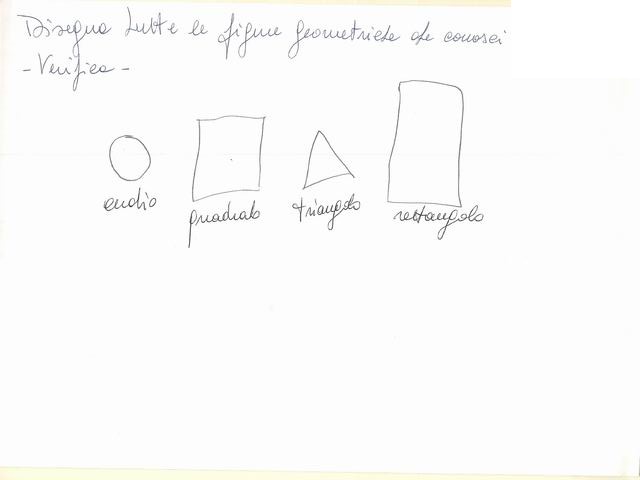 Disegna tutte le figure geometriche che conosci
- Verifica -
cerchio quadrato triangolo rettangolo